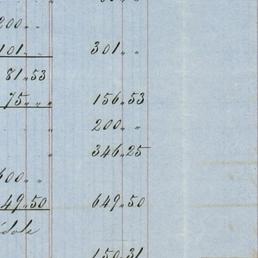 200 „ „
101 „ „ 301 „ „
81 „ 53
75 „ „ 156 „ 53
200 „ „
346 „ 25
600 „ „
49 „ 50 649 „ 50
150 „ 31